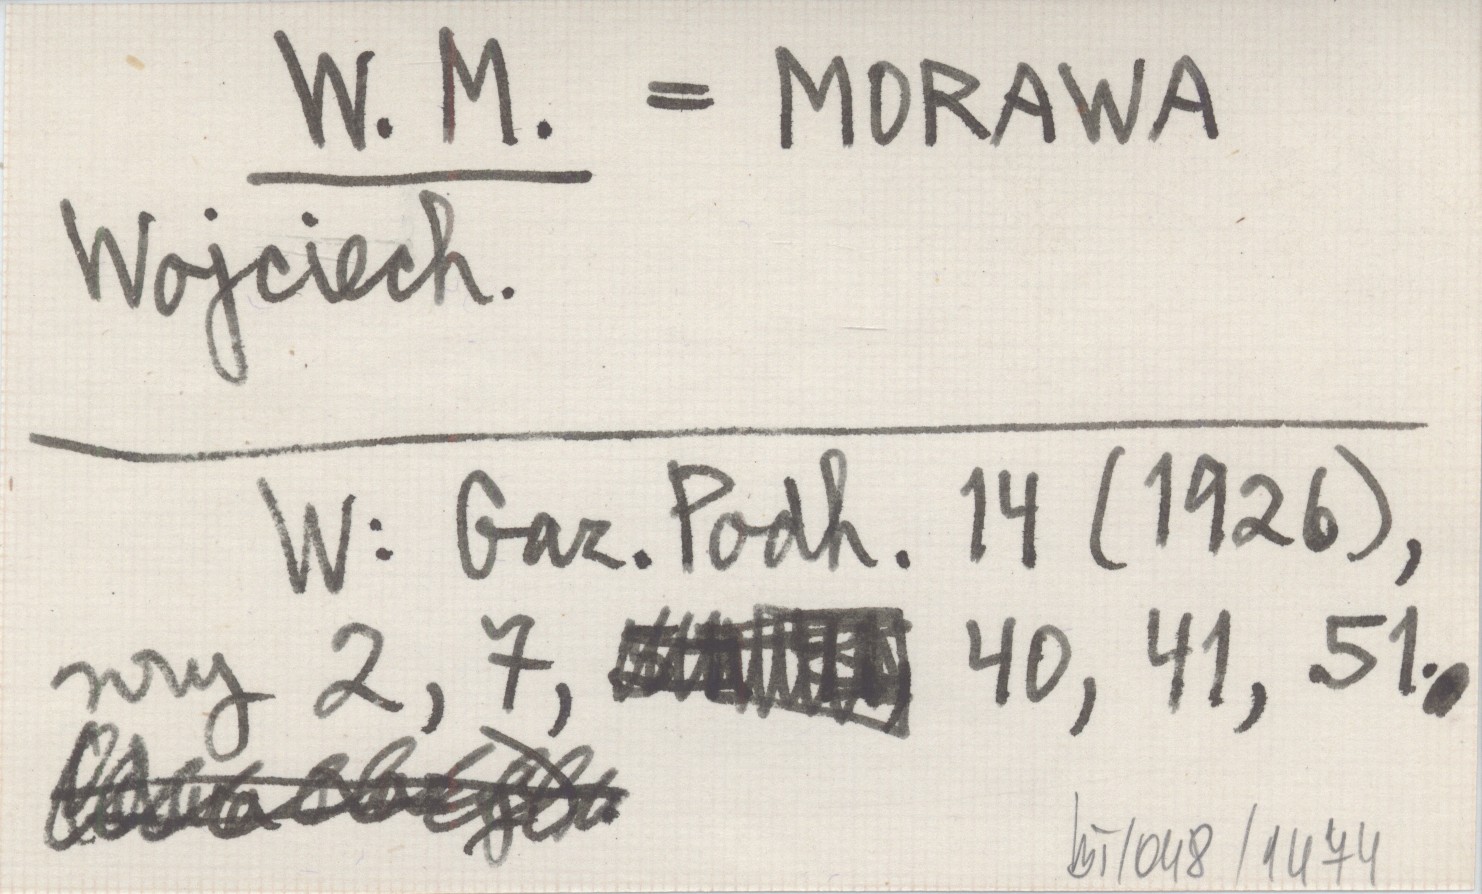 W. M. = MORAWA
Wojciech.
W: Gaz. Podh. 14 (1926),
nry 2, 7, 40, 41, 51.
/048/1474